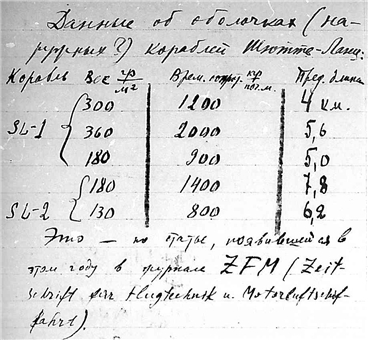 Данные об оболочках (на-
ружных?) кораблей Шютте-Ланц:
Корабль Вес гр/м² Врем. сопрот. кг/пог.м. Пред. длина
300 1200 4 км.
SL-1 360 2000 5,6
180 900 5,0
180 1400 7,8
SL-2 130 800 6,2
Это — по статье, появившейся в
этом году в журнале ZFM (Zeit-
schrift für Flugtechnik u. Motorluftschif-
fahrt).